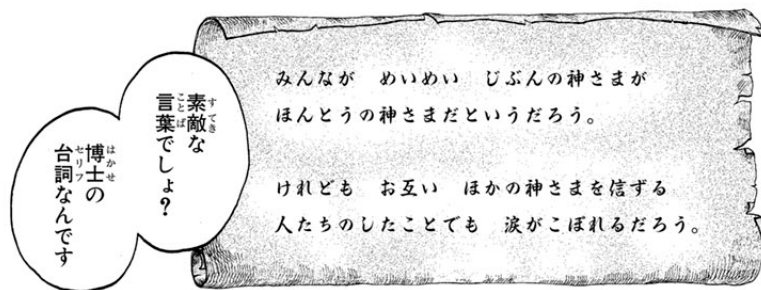 みんなが　めいめい　じぶんの神さまが
ほんとうの神さまだというだろう。
けれども　お互い　ほかの神さまを信ずる
人たちのしたことでも　涙がこぼれるだろう。
素敵な
すてき
言葉でしょ？
ことば
博士の
はかせ
台詞なんです
セリフ